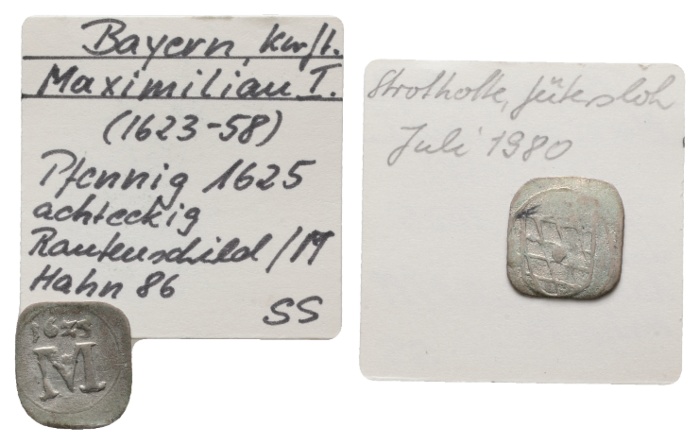 Bayern, Kurft.
Maximilian I.
(1623-58)
Pfennig 1625
achteckig
Rautenschild / M
Hahn 86
SS
1625
M
Strotholte, Gütersloh
Juli 1980